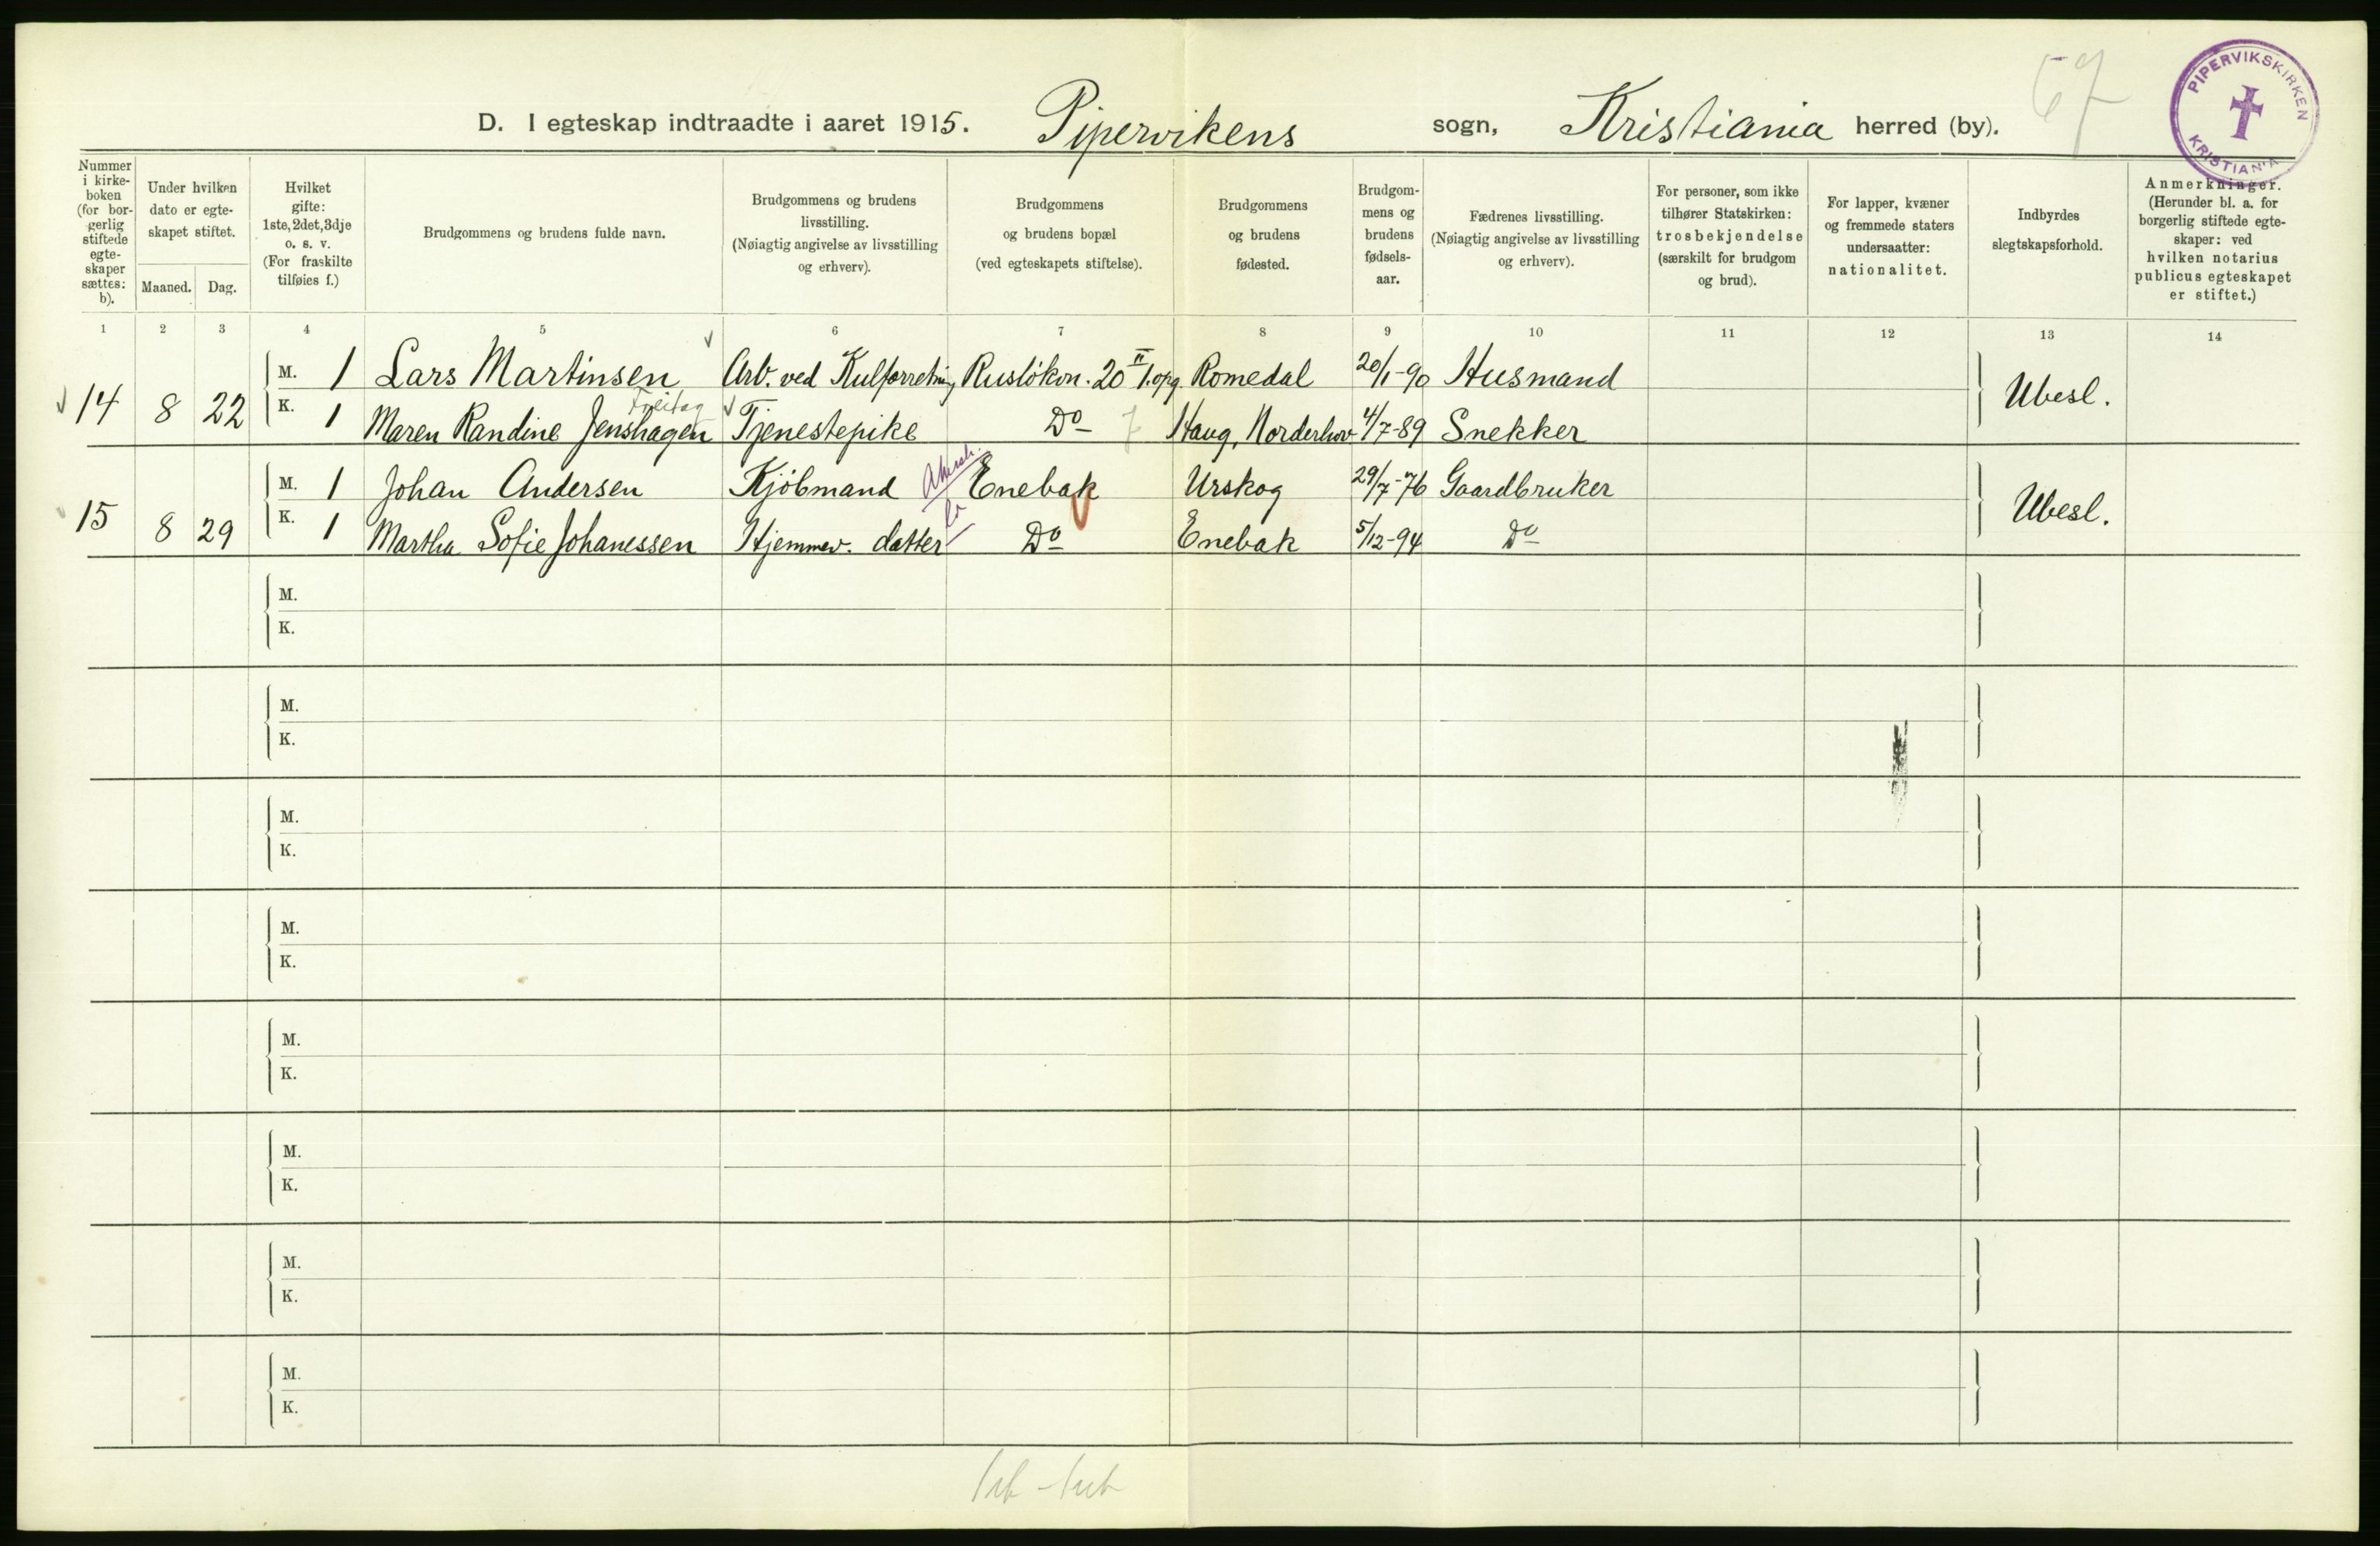 67
PIPERVIKSKIRKEN
KRISTIANIA
D. I egteskap indtraadte i aaret 1915. Pipervikens sogn, Kristiania herred (by).
Nummer i kirke- boken (for bor- gerlig stiftede egte- skaper sættes: b).
Under hvilken dato er egte- skapet stiftet.
Maaned. Dag.
Hvilket gifte: 1ste, 2det, 3dje o. s. v. (For fraskilte tilføies f.)
Brudgommens og brudens fulde navn.
Brudgommens og brudens livsstilling. (Nøiagtig angivelse av livsstilling og erhverv).
Brudgommens og brudens bopæl (ved egteskapets stiftelse).
Brudgommens og brudens fødested.
Brudgom- mens og brudens fødsels- aar.
Fædrenes livsstilling. (Nøiagtig angivelse av livsstilling og erhverv).
For personer, som ikke tilhører Statskirken: trosbekjendelse (særskilt for brudgom og brud).
For lapper, kvæner og fremmede staters undersaatter: nationalitet.
Indbyrdes slegtskapsforhold.
Anmerkninger. (Herunder bl. a. for borgerlig stiftede egte- skaper: ved hvilken notarius publicus egteskapet er stiftet.)
1 2 3 4 5 6 7 8 9 10 11 12 13 14
M. 1 Lars Martinsen Arb. ved Kulforretning Rusløkvn. 20 II 1. opg. Romedal 20/1-90 Husmand
14 8 22 Ubesl.
Freitag
K. 1 Maren Randine Jenshagen Tjenestepike Do 7 Haug, Norderhov 4/7-89 Snekker
M. 1 Johan Andersen Kjöbmand Akersh. Enebak Urskog 29/7-76 Gaardbruker
15 8 29 Ubesl.
K. 1 Martha Sofie Johanessen Hjemmev. datter Do Enebak 5/12-94 Do
M.
K.
M.
K.
M.
K.
M.
K.
M.
K.
M.
K.
M.
K.
M.
K.